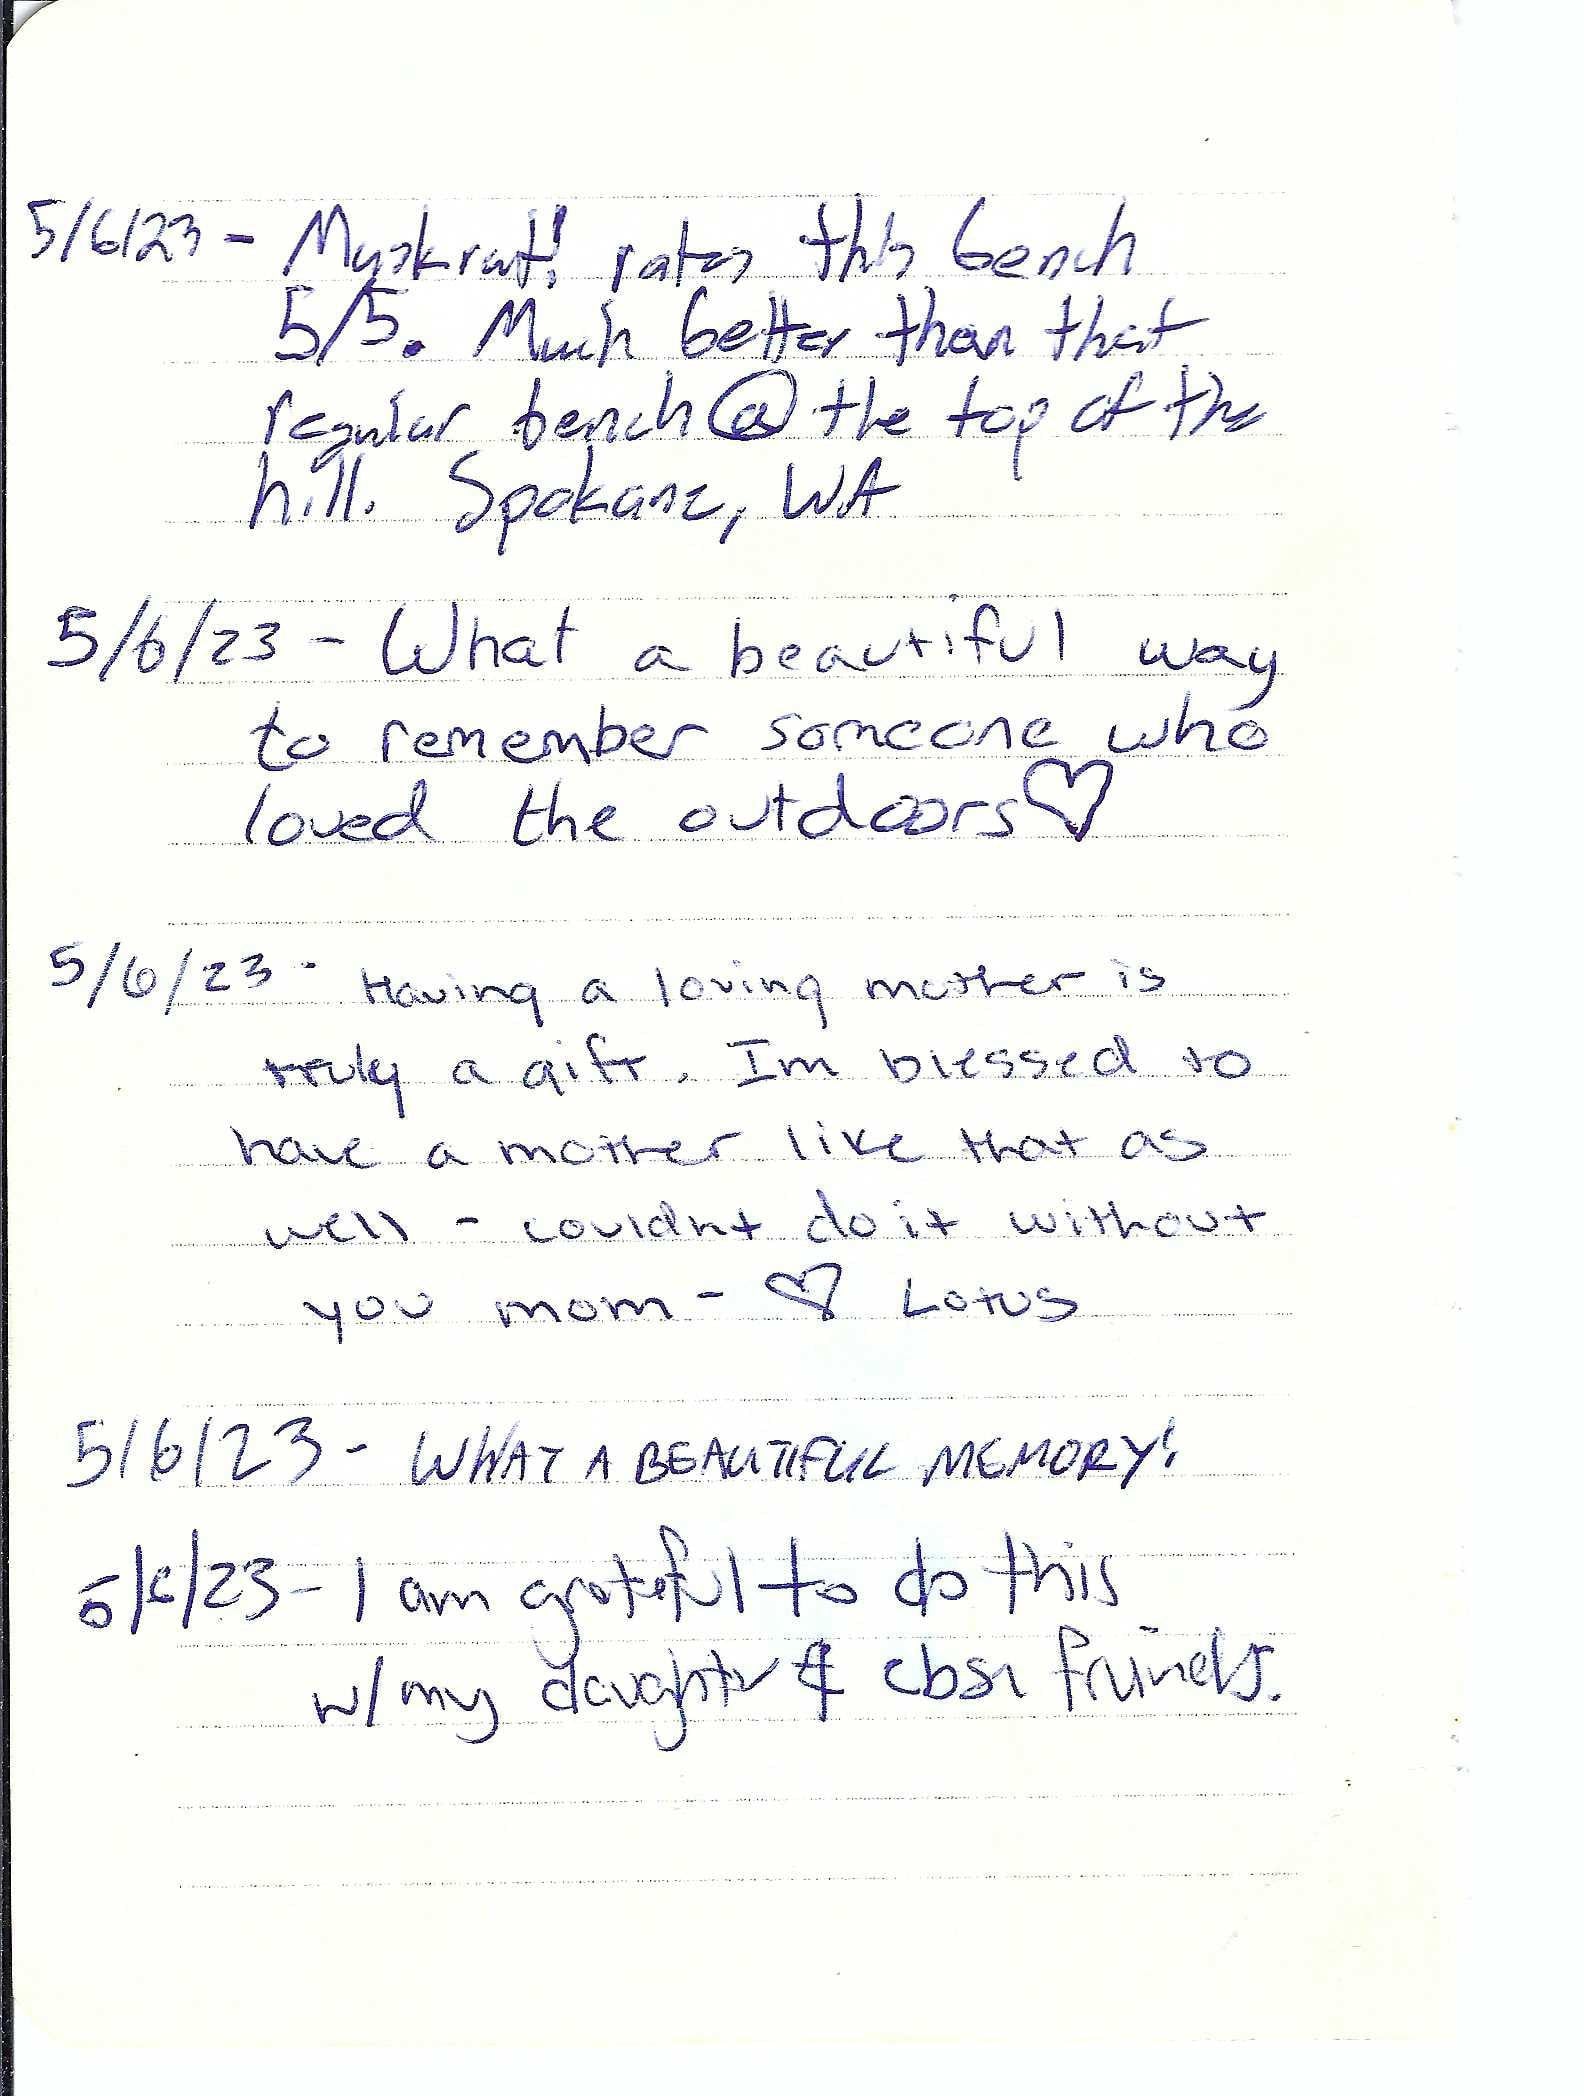 5/6/23 - Muskrat! rates this bench
5/5. Much better than that
regular bench @ the top of the
hill. Spokane, WA
5/6/23 - What a beautiful way
to remember someone who
loved the outdoors ♡
5/6/23 - Having a loving mother is
truly a gift. Im blessed to
have a mother like that as
well - couldnt do it without
you mom - ♡ Lotus
5/6/23 - WHAT A BEAUTIFUL MEMORY!
5/6/23 - I am grateful to do this
w/ my daughter & close friends.